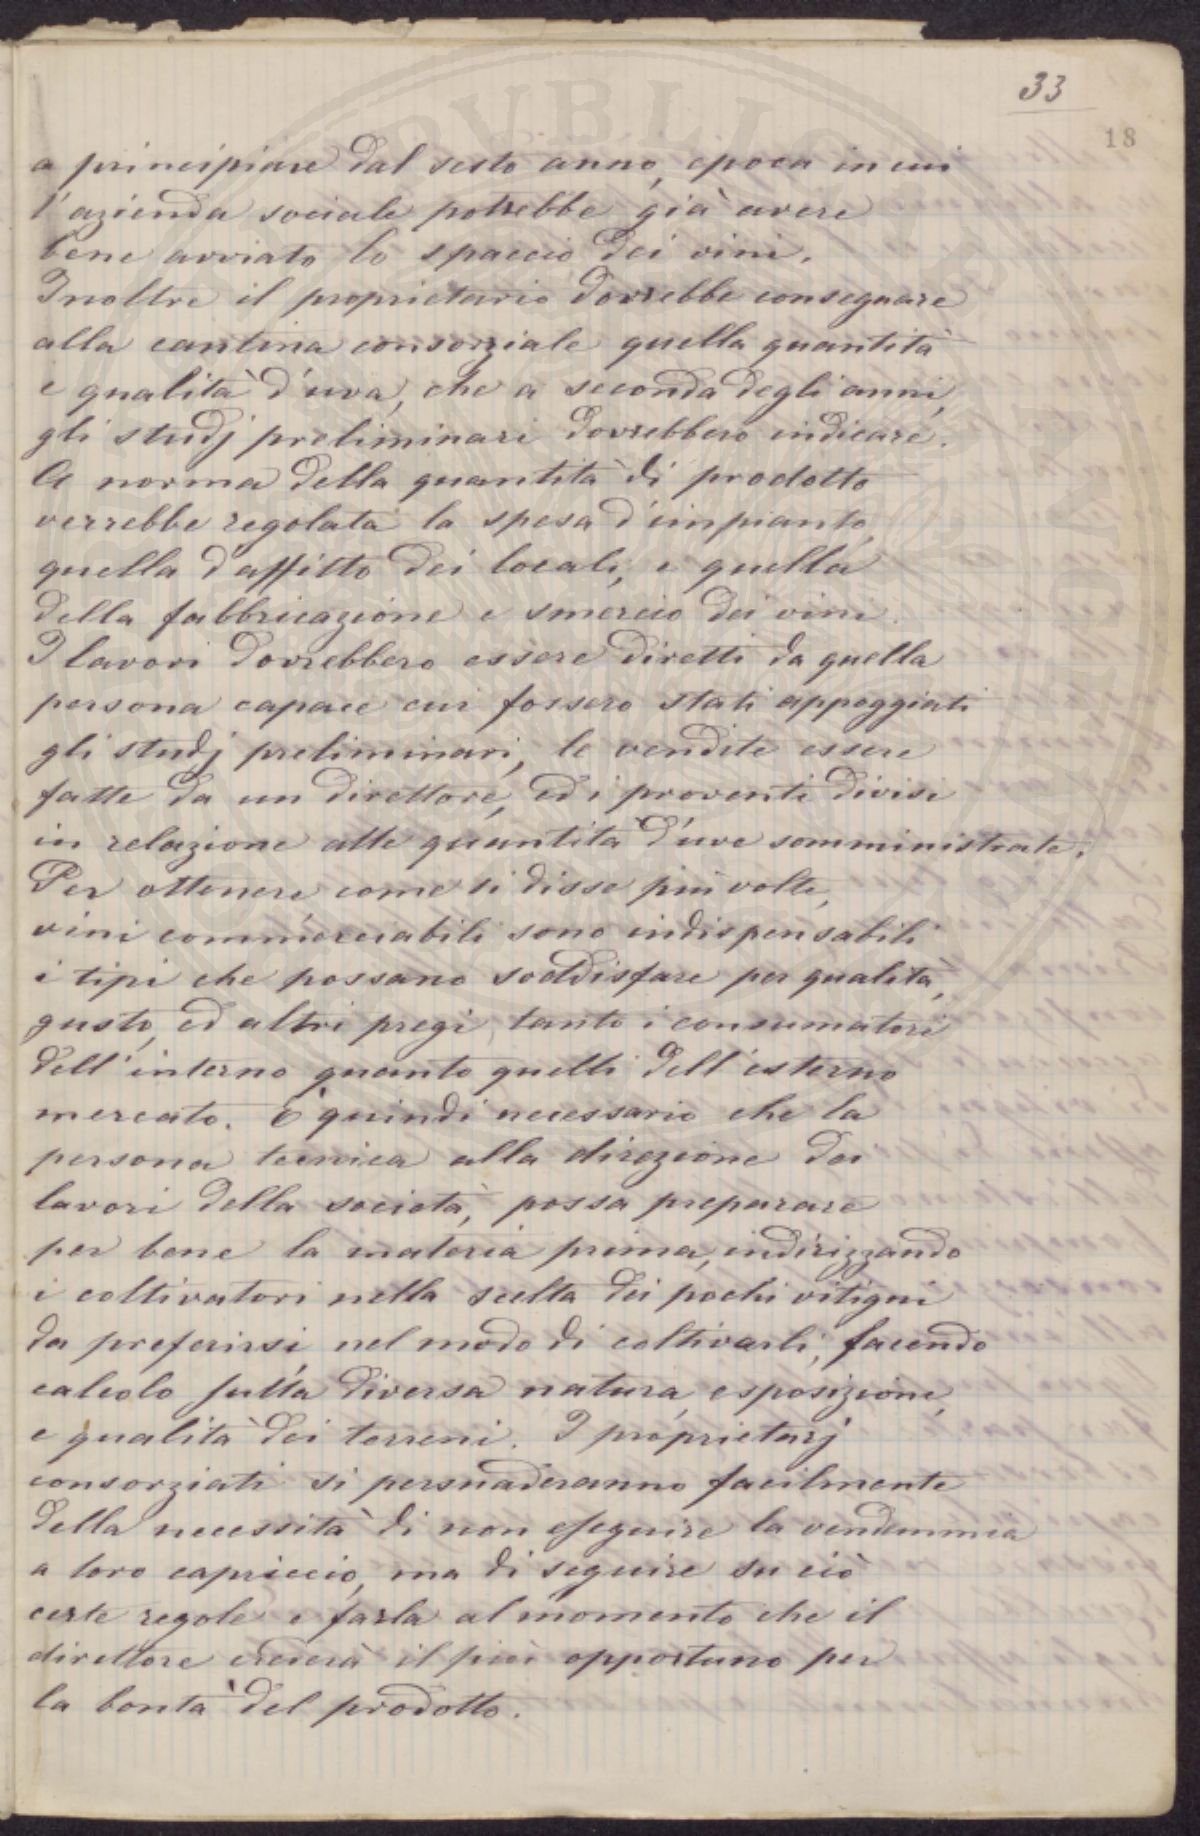 33
18
a principiare dal sesto anno, epoca in cui
l'azienda sociale potrebbe già avere
bene avviato lo spaccio dei vini.
Inoltre il proprietario dovrebbe consegnare
alla cantina consorziale quella quantità
e qualità d'uva, che a seconda degli anni,
gli studj preliminari dovrebbero indicare.
A norma della quantità di prodotto
verrebbe regolata la spesa d'impianto,
quella d'affitto dei locali, e quella
della fabbricazione e smercio dei vini.
I lavori dovrebbero essere diretti da quella
persona capace cui fossero stati appoggiati
gli studj preliminari, le vendite essere
fatte da un direttore, ed i proventi divisi
in relazione alle quantità d'uve somministrate.
Per ottenere come si disse più volte,
vini commerciabili sono indispensabili
i tipi che possano soddisfare per qualità,
gusto, ed altri pregi, tanto i consumatori
dell'interno quanto quelli dell'esterno
mercato. È quindi necessario che la
persona tecnica alla direzione dei
lavori della società, possa preparare
per bene la materia prima, indirizzando
i coltivatori nella scelta dei pochi vitigni
da preferirsi, nel modo di coltivarli, facendo
calcolo sulla diversa natura, esposizione,
e qualità dei terreni. I proprietarj
consorziati si persuaderanno facilmente
della necessità di non eseguire la vendemmia
a loro capriccio, ma di seguire su ciò
certe regole e farla al momento che il
direttore crederà il più opportuno per
la bontà del prodotto.